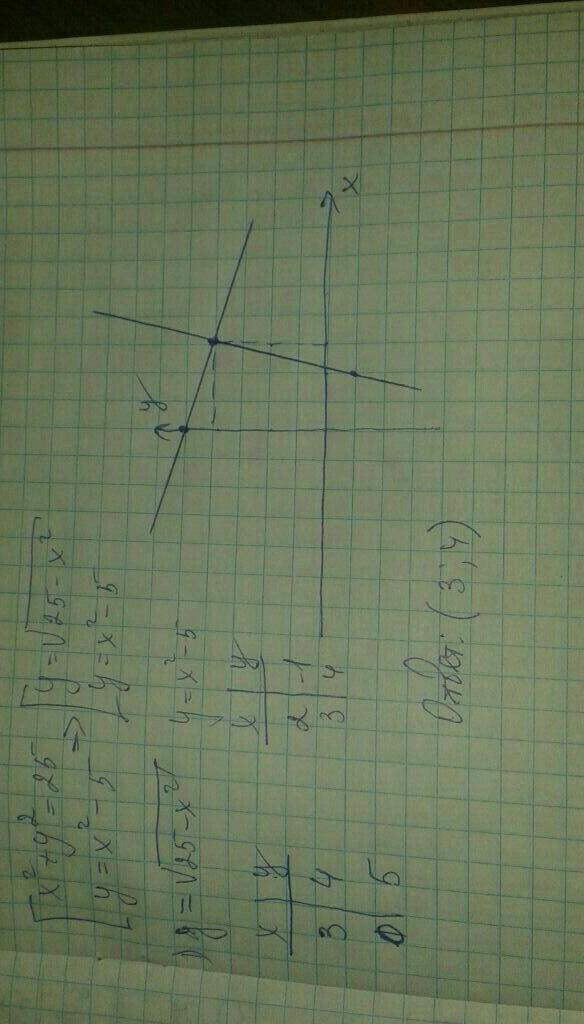 [x² + y² = 25
[y = x² - 5
=>
[y = √25 - x²
[y = x² - 5
) y = √25 - x²
x | y
3 | 4
0 | 5
y = x² - 5
x | y
2 | -1
3 | 4
y
x
Ответ: (3; 4)